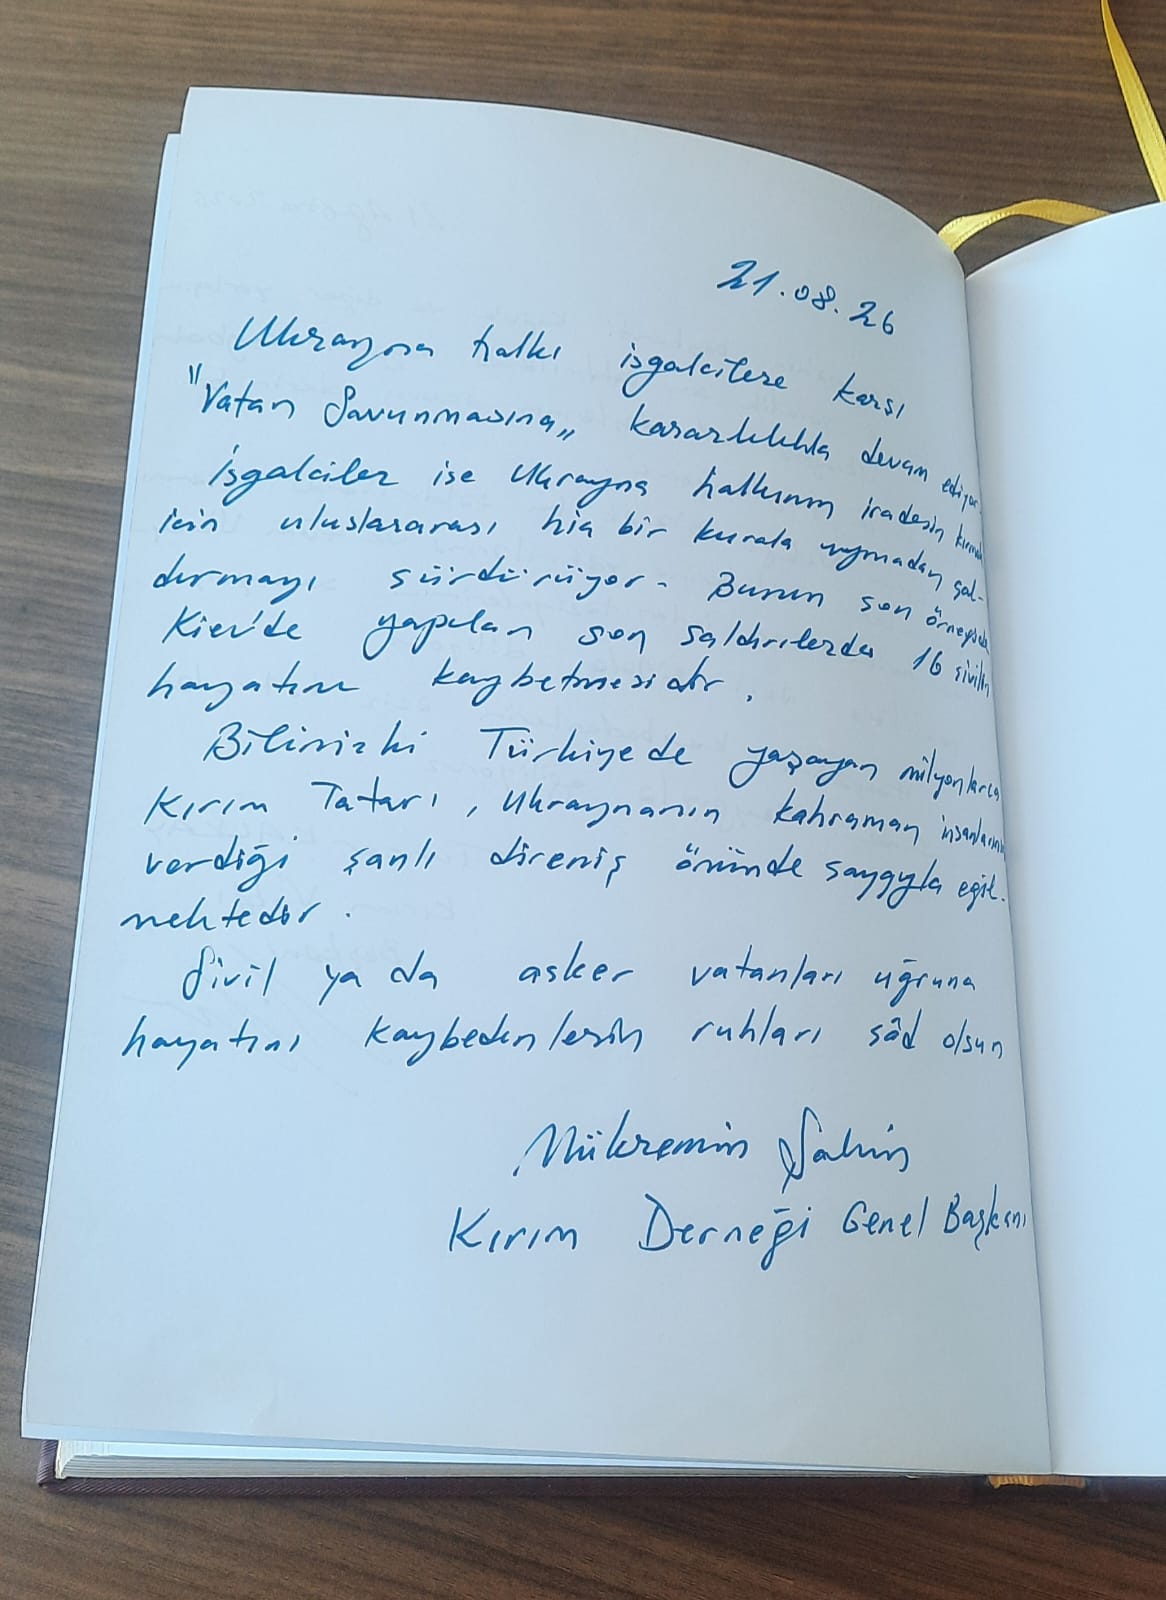 21.08.26
Ukrayna halkı işgalcilere karşı
"Vatan Savunmasına„ kararlılıkla devam ediyor.
İşgalciler ise Ukrayna halkının iradesin kırmak
için uluslararası hiç bir kurala uymadan sal-
dırmayı sürdürüyor. Bunun son örneği de
Kiev'de yapılan son saldırılarda 16 sivilin
hayatını kaybetmesidir.
Biliniz ki Türkiyede yaşayan milyonlarca
Kırım Tatarı, Ukraynanın kahraman insanlarının
verdiği şanlı direniş önünde saygıyla eğil-
mektedir.
Sivil ya da asker vatanları uğruna
hayatını kaybedenlerin ruhları şâd olsun
Mükremin Şahin
Kırım Derneği Genel Başkanı